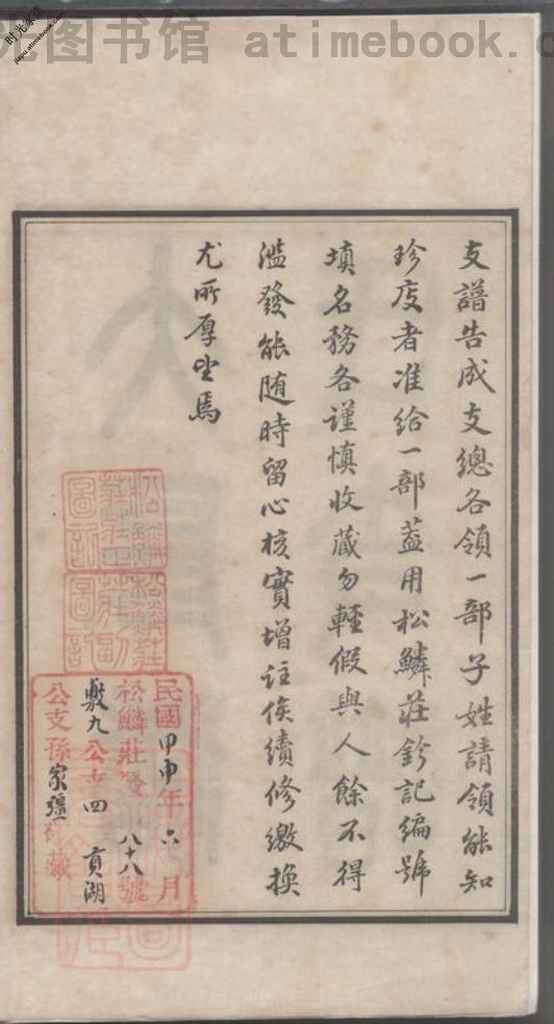 时光图书馆 atimebook.c
支譜告成支總各領一部子姓請領能知
珍庋者准給一部葢用松鱗莊鈐記編號
填名務各謹慎收藏勿輕假與人餘不得
濫發能随時留心核實增註俟續修繳換
尤所厚望焉
民國甲申年六月
松鱗莊發 八十八號
敷九公支四 貢湖
公支孫家 藏